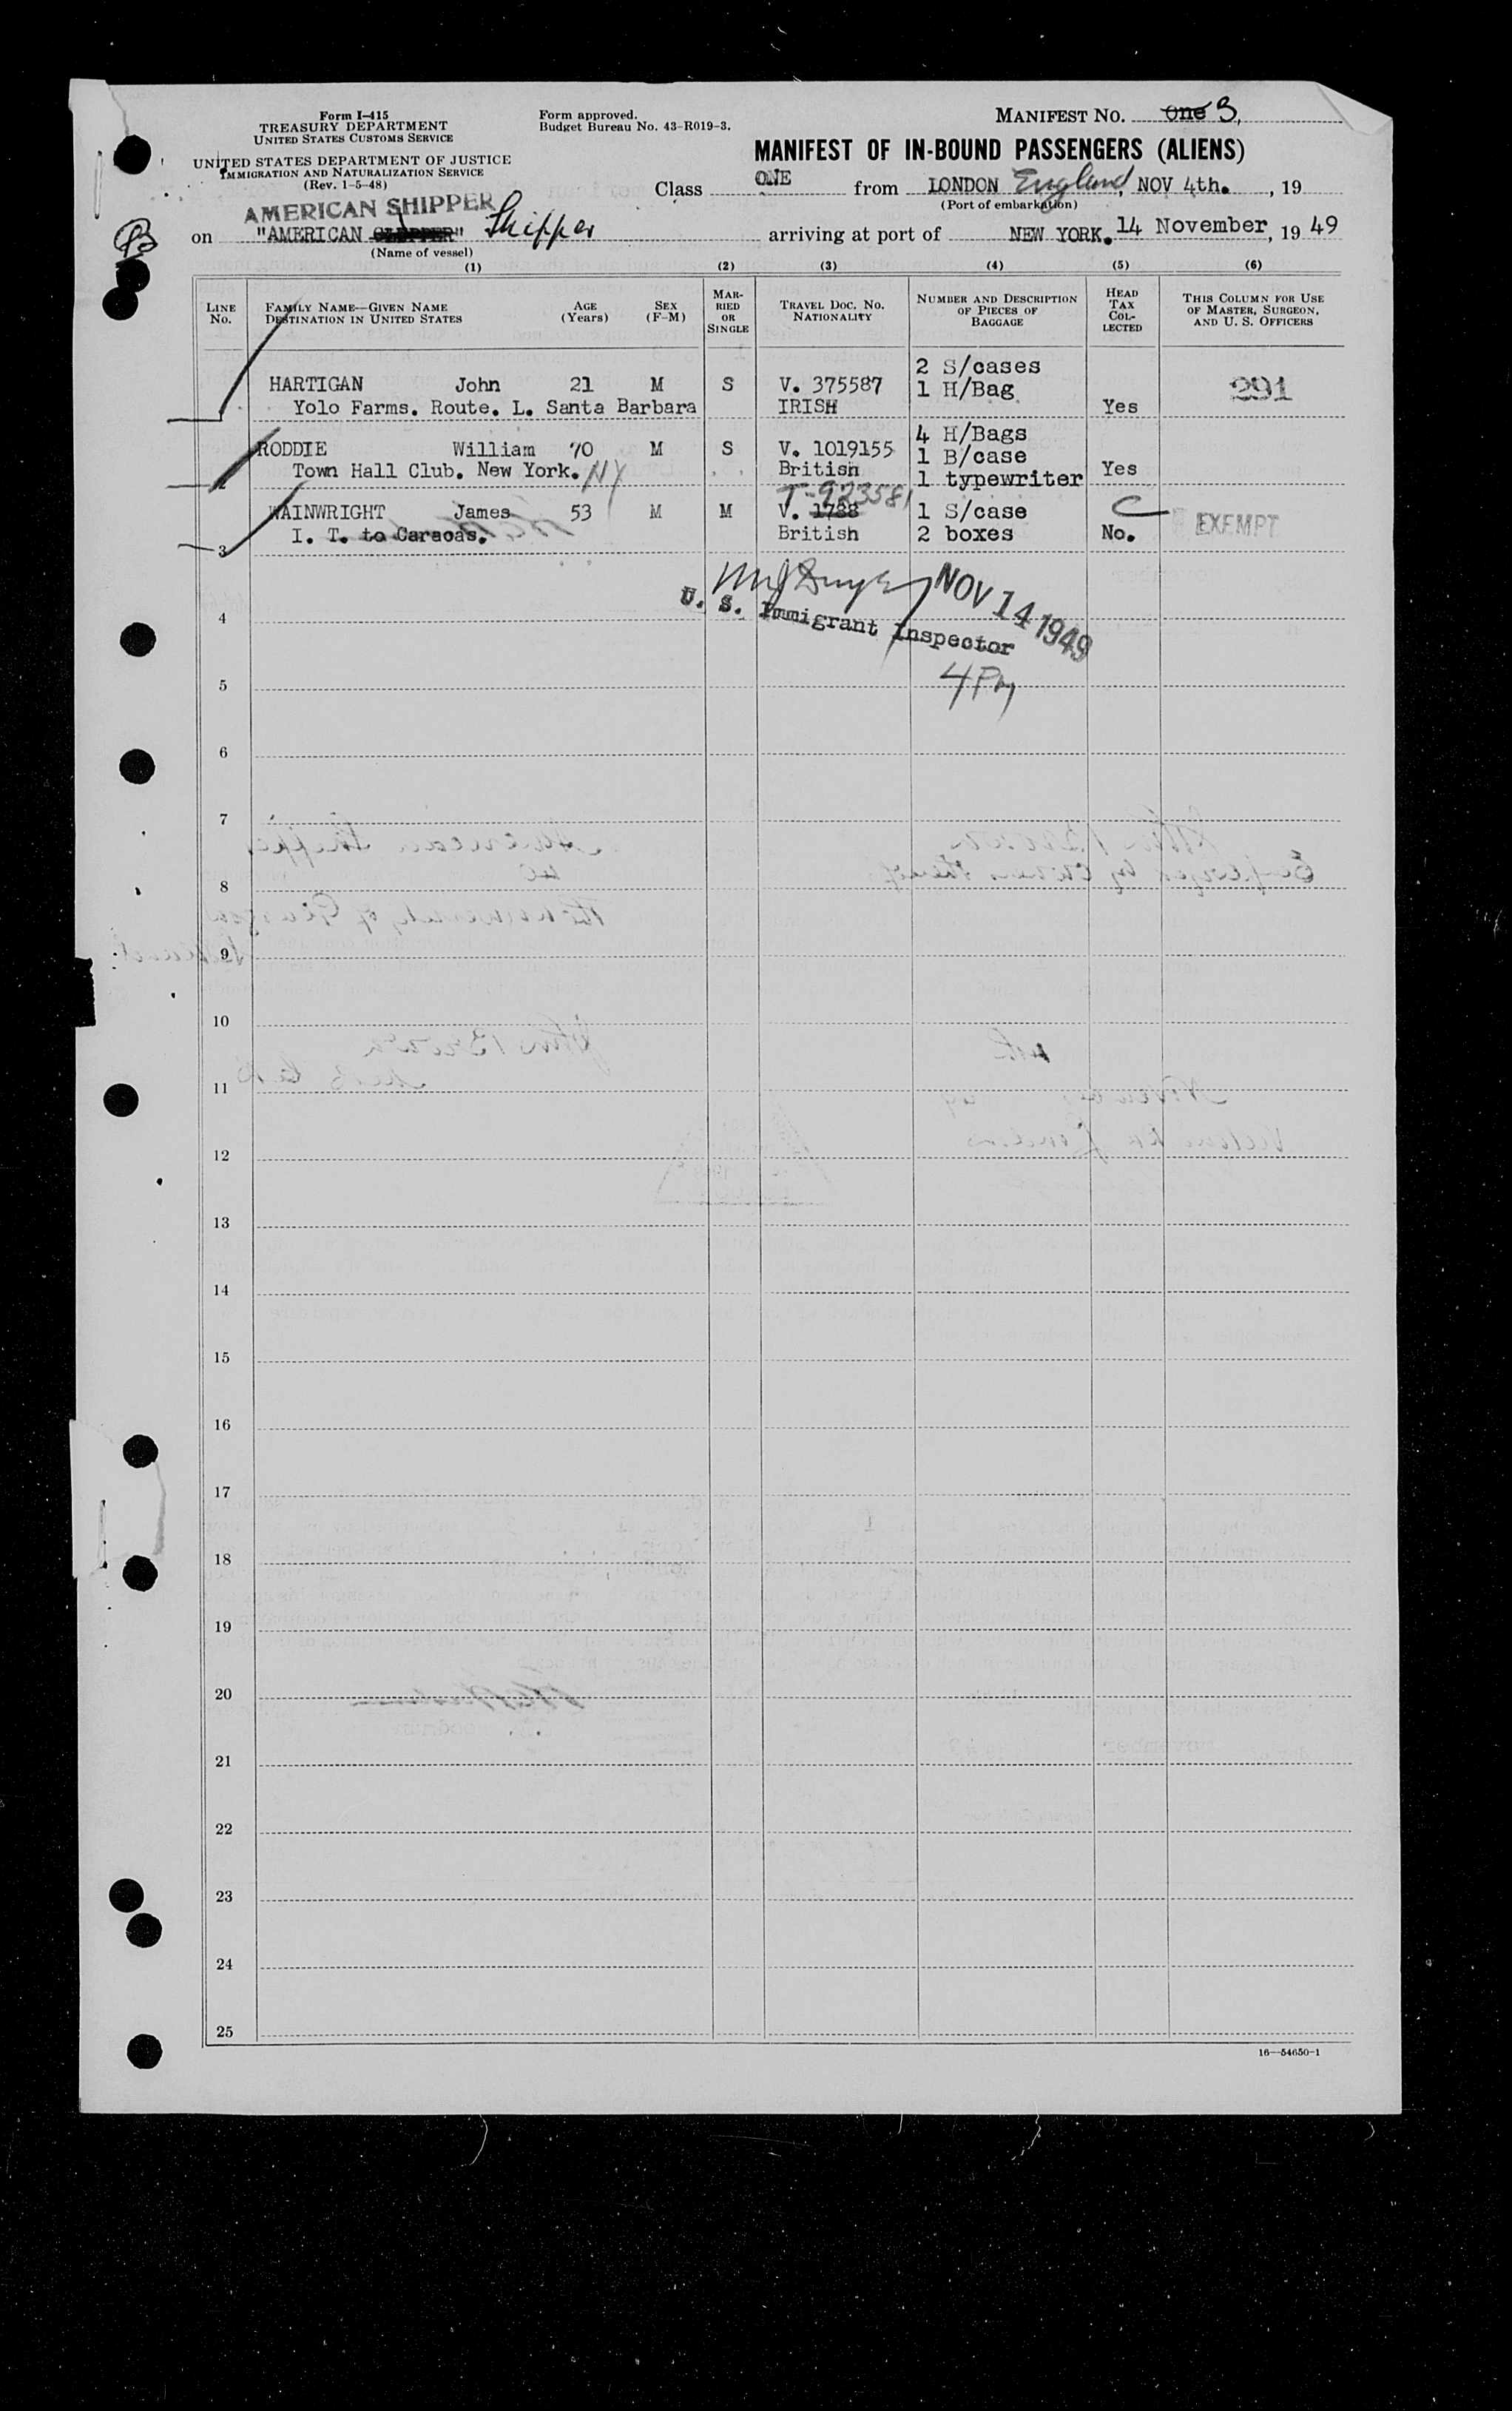 Form I-415
TREASURY DEPARTMENT
UNITED STATES CUSTOMS SERVICE
UNITED STATES DEPARTMENT OF JUSTICE
IMMIGRATION AND NATURALIZATION SERVICE
(Rev. 1-5-48)
Form approved.
Budget Bureau No. 43-R019-3.
MANIFEST NO. one 3,
MANIFEST OF IN-BOUND PASSENGERS (ALIENS)
Class ONE from LONDON England, NOV 4th. , 19
(Port of embarkation)
AMERICAN SHIPPER
on "AMERICAN CLIPPER" Shipper arriving at port of NEW YORK. 14 November, 19 49
(Name of vessel)
(1) (2) (3) (4) (5) (6)
LINE No. FAMILY NAME—GIVEN NAME DESTINATION IN UNITED STATES AGE (Years) SEX (F-M) MARRIED OR SINGLE TRAVEL DOC. NO. NATIONALITY NUMBER AND DESCRIPTION OF PIECES OF BAGGAGE HEAD TAX COLLECTED THIS COLUMN FOR USE OF MASTER, SURGEON, AND U. S. OFFICERS
2 S/cases
HARTIGAN John 21 M S V. 375587 1 H/Bag 291
Yolo Farms. Route. L. Santa Barbara IRISH Yes
4 H/Bags
RODDIE William 70 M S V. 1019155 1 B/case
Town Hall Club. New York. NY British 1 typewriter Yes
T-923581
WAINWRIGHT James 53 M M V. 1788 1 S/case C EXEMPT
3 I. T. to Caracas. British 2 boxes No.
NOV 14 1949
U. S. Immigrant Inspector
4 Pm
4
5
6
7
8
9
10
11
12
13
14
15
16
17
18
19
20
21
22
23
24
25
16—54650-1